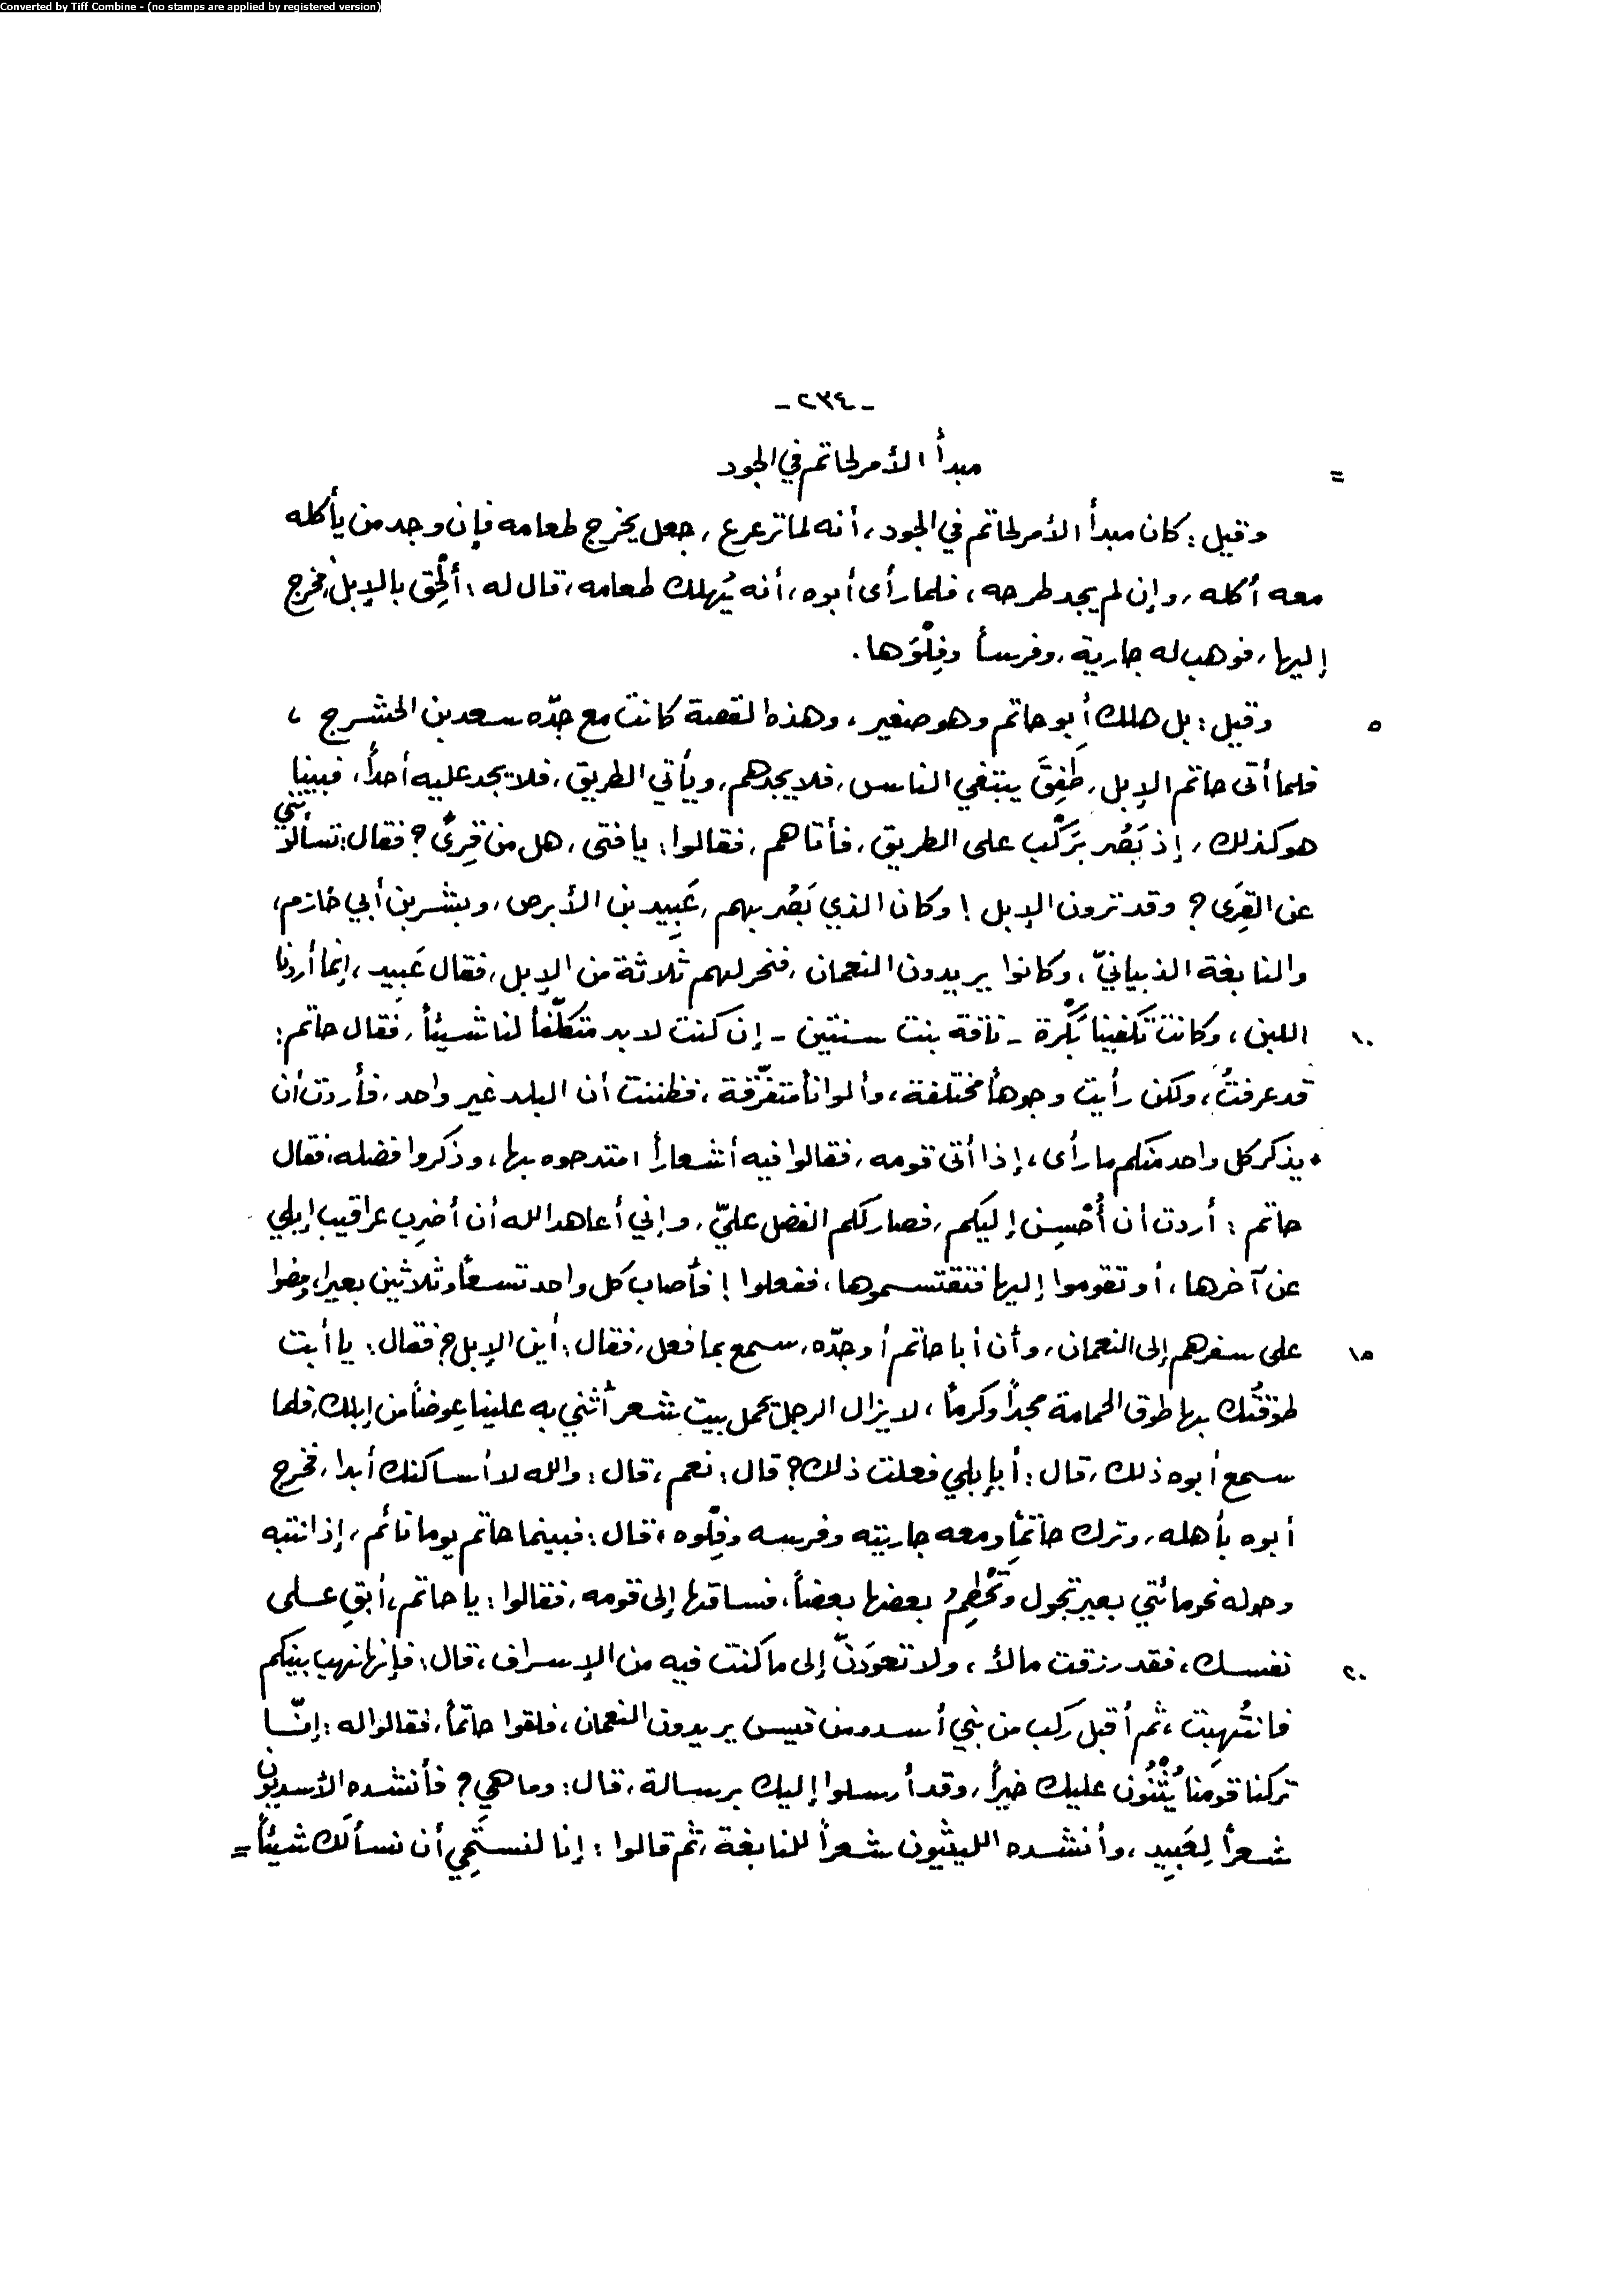 Converted by Tiff Combine - (no stamps are applied by registered version)
- ٢٣٤ -
= مبدأ الأمر لحاتم في الجود
وقيل : كان مبدأ الأمر لحاتم في الجود ، أنه لما ترعرع ، جعل يخرج طعامه فإن وجد من يأكله
معه أكله ، وإن لم يجد طرحه ، فلما رأى أبوه ، أنه يُهلك طعامه ، قال له : ألْحِق بالإبل ، فخرج
إليها ، فوهب له جارية ، وفرسأ وفِلْوَها .
٥ وقيل : بل هلك أبو حاتم وهو صغير ، وهذه القصة كانت مع جدّه سعد بن الحشرج ،
فلما أتى حاتم الإبل ، طَفِقَ يبتغي الناس ، فلا يجدهم ، ويأتي الطريق ، فلا يجد عليه أحداً ، فبينا
هو كذلك ، إذ بَصُر بَركْب على الطريق ، فأتاهم ، فقالوا : يا فتى ، هل من قِرىً ؟ فقال : تسألونني
عن القِرَى ؟ وقد ترون الإبل ! وكان الذي بَصُر بهم ، عَبِيد بن الأبرص ، وبشر بن أبي خازم ،
والنابغة الذبيانيّ ، وكانوا يريدون النعمان ، فنحر لهم ثلاثة من الإبل ، فقال عَبِيد ، إنما أردنا
١٠ اللبن ، وكانت تكفينا بَكْرة - ناقة بنت سنتين - إن كنت لابد متكلّفاً لنا شيئاً ، فقال حاتم :
قد عرفتُ ، ولكن رأيت وجوهاً مختلفة ، وألواناً متفرّقة ، فظننت أن البلد غير واحد ، فأردت أن
يذكر كل واحد منكم ما رأى ، إذا أتى قومه ، فقالوا فيه أشعاراً امتدحوه بها ، وذكروا فضله ، فقال
حاتم : أردت أن أُحْسِن إليكم ، فصار لكم الفضل عليّ ، وإني أعاهد الله أن أضرِب عراقيب إبلي
عن آخرها ، أو تقوموا إليها فتقتسموها ، ففعلوا ! فأصاب كل واحد تسعاً وثلاثين بعيرا ، ومضوا
١٥ على سفرهم إلى النعمان ، وأن أبا حاتم أو جدّه ، سمع بما فعل ، فقال : أين الإبل ؟ فقال : يا أبت
طوّقتُك بها طوق الحمامة مجداً وكرماً ، لا يزال الرجل يحمل بيت شعر أثني به علينا عِوضاً من إبلك ، فلما
سمع أبوه ذلك ، قال : أبإبلي فعلت ذلك ؟ قال : نعم ، قال : والله لا أساكنك أبدا ، فخرج
أبوه بأهله ، وترك حاتماً ومعه جاريته وفرسه وفِلْوه ، قال : فبينما حاتم يوما نائم ، إذ انتبه
وحوله نحو مائتي بعير تجول وتَحْطِمُ بعضها بعضاً ، فساقها إلى قومه ، فقالوا : يا حاتم ، أبقِ على
٢٠ نفسك ، فقد رزقت مالاً ، ولا تعودَنّ إلى ما كنت فيه من الإسراف ، قال : فإنها نهب بينكم
فانتُهِبت ، ثم أقبل ركب من بني أسد ومن قيس يريدون النعمان ، فلقوا حاتماً ، فقالوا له : إنّا
تركنا قومَنا يُثْنُون عليك خيراً ، وقد أرسلوا إليك برسالة ، قال : وما هي ؟ فأنشده الأسديون
شعراً لِعَبِيد ، وأنشده الليثيون شعراً للنابغة ، ثم قالوا : إنا لنستَحِي أن نسألك شيئاً =